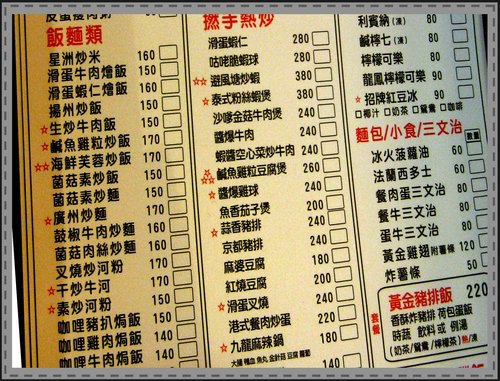 皮蛋瘦肉粥
飯麵類
星洲炒米 160
滑蛋牛肉燴飯 150
滑蛋蝦仁燴飯 160
揚州炒飯 150
☆生炒牛肉飯 150
☆鹹魚雞粒炒飯 150
☆☆海鮮芙蓉炒飯 170
菌菇素炒飯 150
菌菇素炒麵 150
☆廣州炒麵 170
豉椒牛肉炒麵 160
菌菇肉絲炒麵 160
叉燒炒河粉 170
☆干炒牛河 170
☆素炒河粉 150
咖哩豬扒焗飯 150
咖哩雞肉焗飯 140
咖哩牛肉焗飯 140
撚手熱炒
滑蛋蝦仁 280
咕咾脆蝦球 280
☆☆避風塘炒蝦 380
☆泰式粉絲蝦煲 380
沙嗲金菇牛肉煲 240
醬爆牛肉 240
蝦醬空心菜炒牛肉 240
☆☆☆鹹魚雞粒豆腐煲 260
☆醬爆雞球 240
魚香茄子煲 200
☆蒜香豬排 240
京都豬排 240
麻婆豆腐 180
紅燒豆腐 200
☆滑蛋叉燒 240
港式餐肉炒蛋 240
☆九龍麻辣鍋 180
大腸 鴨血 魚丸 金針菇 豆腐
利賓納(凍) 80
鹹檸七(凍) 80
檸檬可樂 80
龍鳳檸檬可樂 90
☆招牌紅豆冰 90
□椰汁 □奶茶 □鴛鴦 □咖啡
麵包/小食/三文治
冰火菠蘿油 60 數量
法蘭西多士 60
餐肉蛋三文治 80
餐牛三文治 80
蛋牛三文治 80
黃金雞翅附薯條 120
炸薯條 50
黃金豬排飯 220
套餐
香酥炸豬排 荷包蛋飯
時蔬 飲料 或 例湯
(奶茶/鴛鴦/檸檬茶) 熱/凍